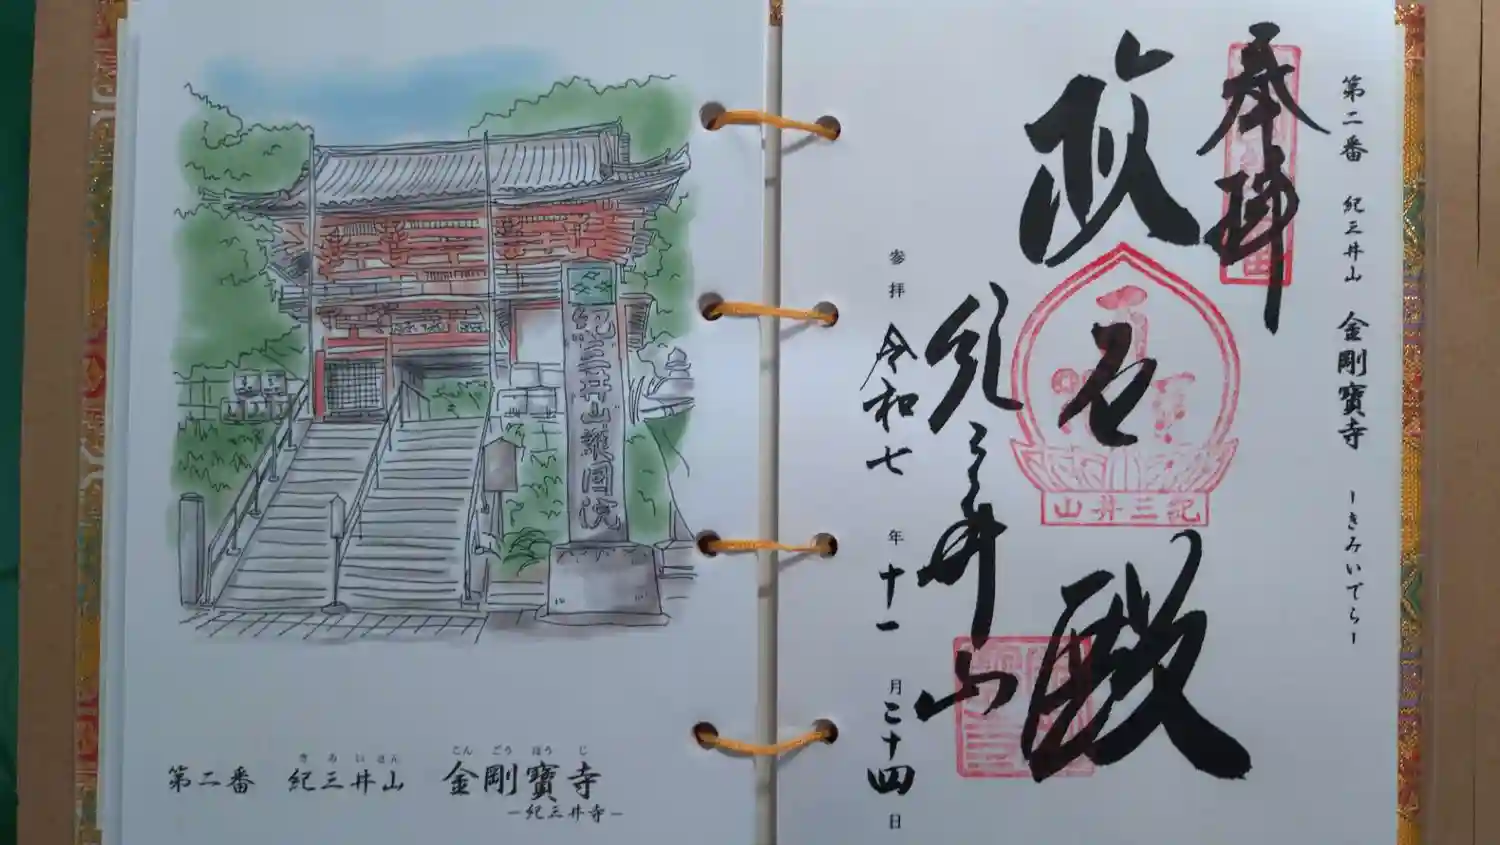 紀三井山護国院
きみいさん こんごうほうじ
第二番 紀三井山 金剛寶寺
―紀三井寺―
第二番 紀三井山 金剛寶寺 ―きみいでら―
奉拝
救世殿
紀三井山
紀三井山
参拝 令和七年十一月二十四日